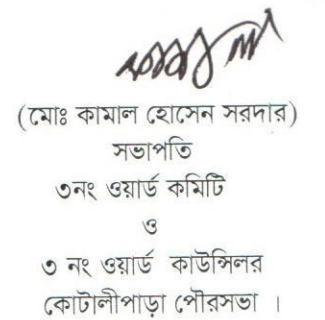 (মোঃ কামাল হোসেন সরদার)
সভাপতি
৩নং ওয়ার্ড কমিটি
ও
৩ নং ওয়ার্ড কাউন্সিলর
কোটালীপাড়া পৌরসভা ।